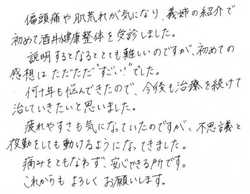 偏頭痛や肌荒れが気になり、義姉の紹介で
初めて酒井健康整体を受診しました。
説明するとなるととても難しいのですが、初めての
感想はただただ"すごい"でした。
何十年も悩んできたので、今後も治療を続けて
治していきたいと思いました。
疲れやすさも気になっていたのですが、不思議と
夜勤をしても動けるようになってきました。
痛みをともなわず、安心できる所です。
これからも よろしくお願いします。